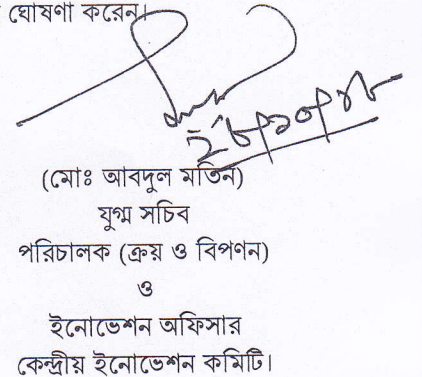 ঘোষণা করেন।
(মোঃ আবদুল মতিন)
যুগ্ম সচিব
পরিচালক (ক্রয় ও বিপণন)
ও
ইনোভেশন অফিসার
কেন্দ্রীয় ইনোভেশন কমিটি।